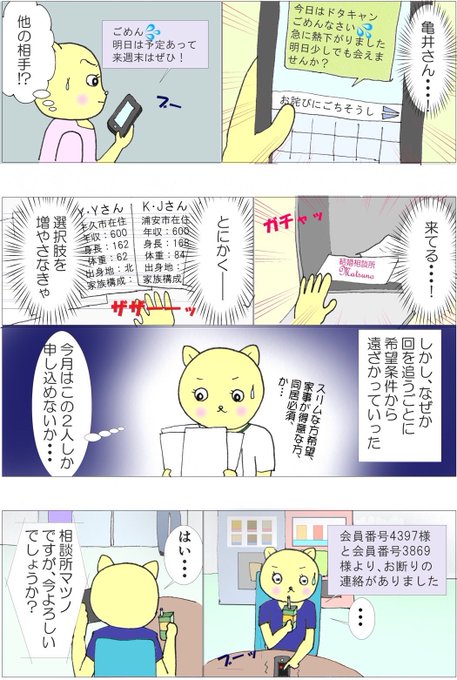 亀井さん・・・！
今日はドタキャン
ごめんなさい💦
急に熱下がりました
明日少しでも会えま
せんか？
お詫びにごちそうし
ごめん💦
明日は予定あって
来週末はぜひ！
他の相手!?
ブー
来てる・・・！
ガチャッ
結婚相談所
Matsuno
とにかくー
K・Jさん
浦安市在住
年収：600
身長：168
体重：84
出身地：
家族構成
Y・Yさん
久市在住
年収：600
身長：162
体重：62
出身地：北
家族構成：
選択肢を
増やさなきゃ
ザザーーッ
しかし、なぜか
回を追うごとに
希望条件から
遠ざかっていった
スリムな方希望、
家事が得意な方、
同居必須、
か・・・
今月はこの２人しか
申し込めないか・・・
会員番号4397様
と会員番号3869
様より、お断りの
連絡がありました
・・・
ブーッ
はい・・・
相談所マツノ
ですが、今よろしい
でしょうか？